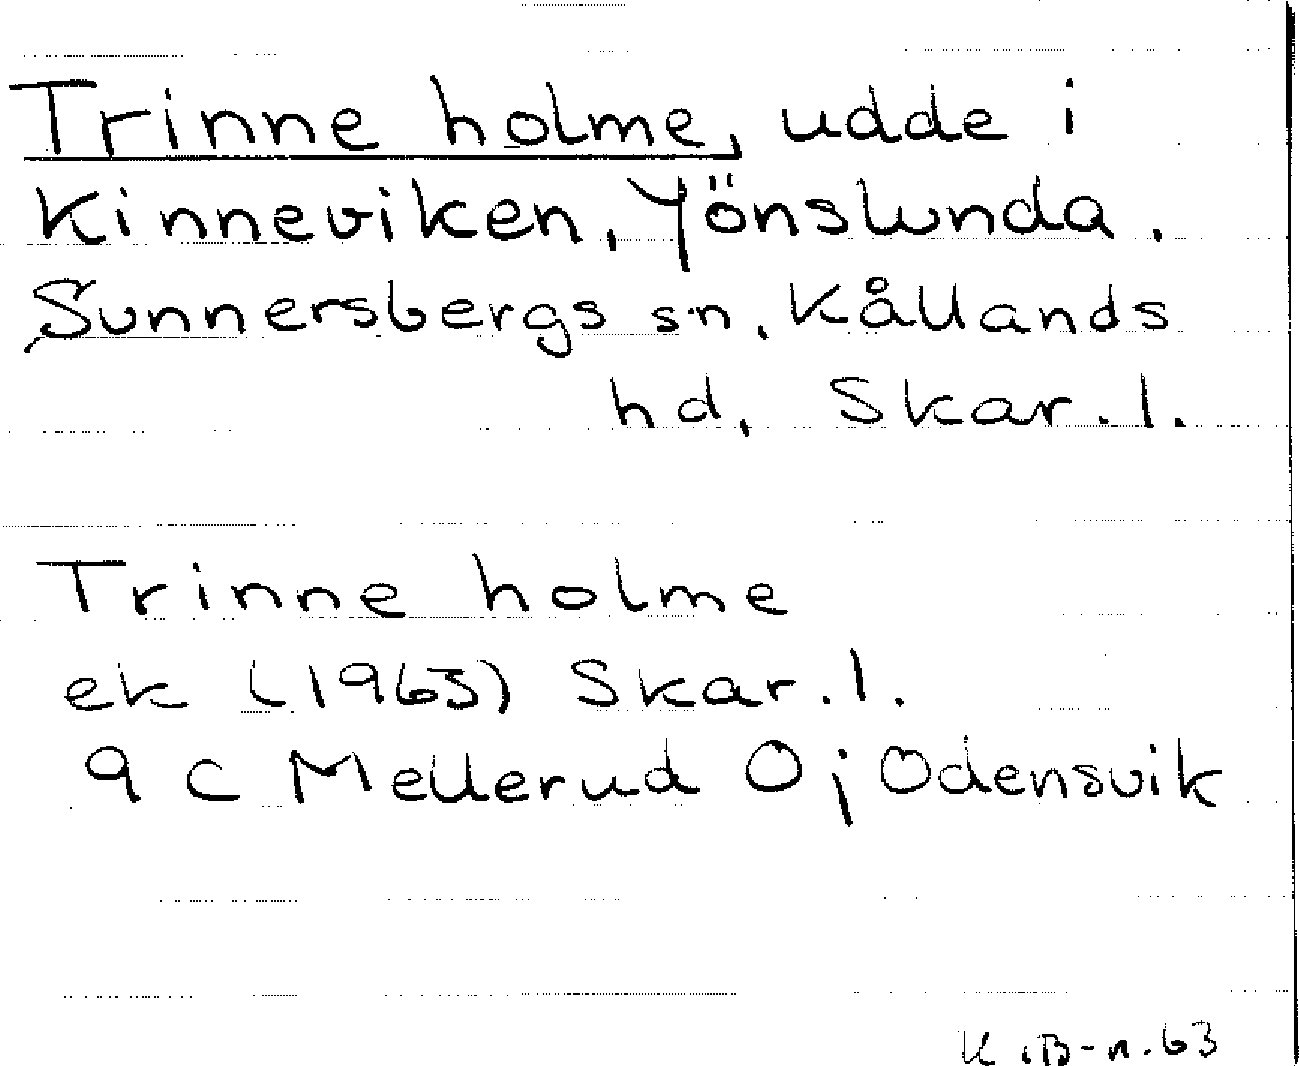 Trinne holme, udde i
Kinneviken, Jönslunda.
Sunnersbergs sn, Kållands
hd, Skar. l.
Trinne holme
ek (1963) Skar. l.
9 C Mellerud Oj Odensvik
K.B-n.63